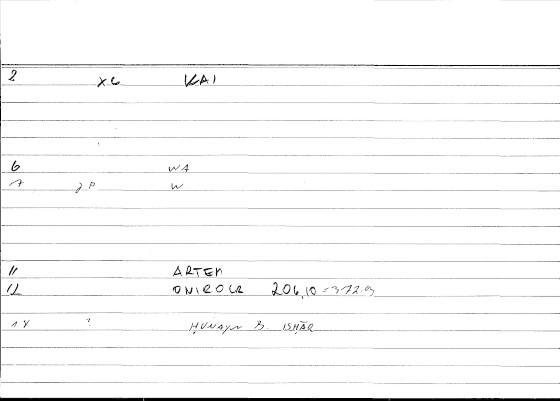 2 x6 KAI
6 WA
7 2P W
11 ARTEM
12 ONIROCR 206,10 = 372.9
14 ? ḤUNAYN B. ISḤĀQ